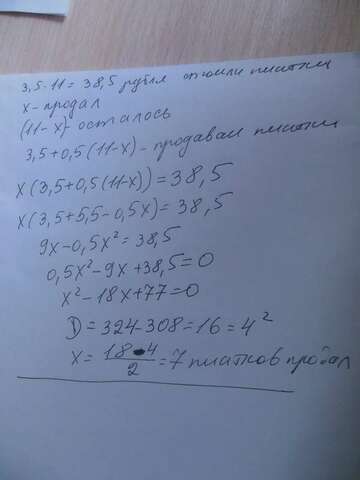 3,5·11 = 38,5 рубля стоили платки
x - продал
(11-x) - осталось
3,5+0,5(11-x) - продавал платки
x(3,5+0,5(11-x))=38,5
x(3,5+5,5-0,5x)=38,5
9x-0,5x²=38,5
0,5x²-9x+38,5=0
x²-18x+77=0
D=324-308=16=4²
x=(18-4)/2=7 платков продал